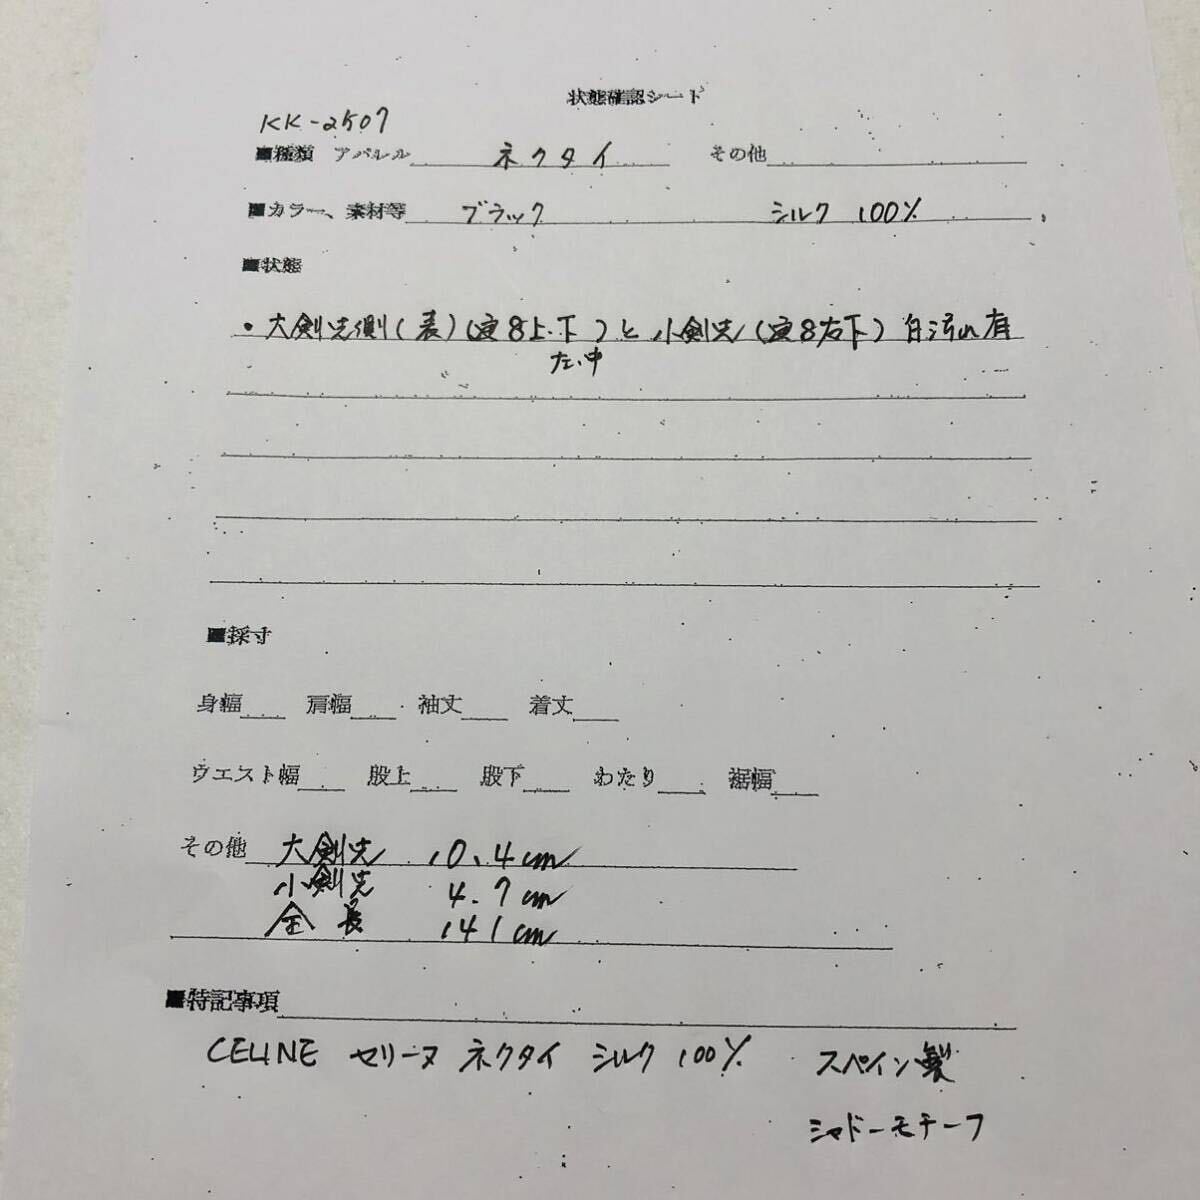 状態確認シート
KK-2507
■種類 アパレル ネクタイ その他
■カラー、素材等 ブラック シルク 100%
■状態
・大剣先側(表)(8上、下)と小剣先(8右下)白汚れ有
左、中
■採寸
身幅 肩幅 袖丈 着丈
ウエスト幅 股上 股下 わたり 裾幅
その他 大剣先 10.4cm
小剣先 4.7cm
全長 141cm
■特記事項
CELINE セリーヌ ネクタイ シルク 100% スペイン製
シャドーモチーフ